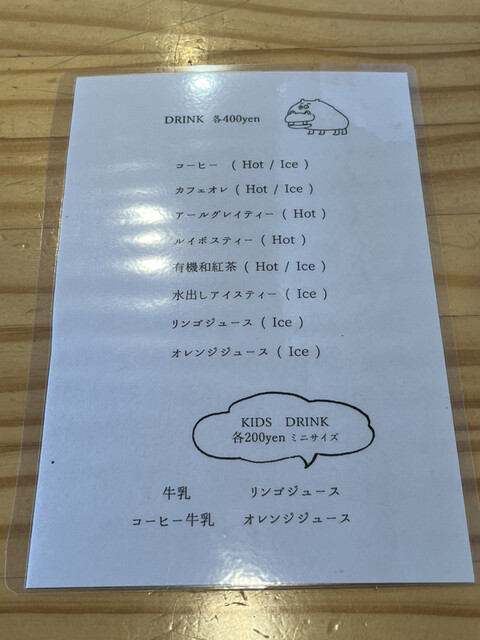 DRINK 各400yen
コーヒー ( Hot / Ice )
カフェオレ ( Hot / Ice )
アールグレイティー ( Hot )
ルイボスティー ( Hot )
有機和紅茶 ( Hot / Ice )
水出しアイスティー ( Ice )
リンゴジュース ( Ice )
オレンジジュース ( Ice )
KIDS DRINK
各200yen ミニサイズ
牛乳 リンゴジュース
コーヒー牛乳 オレンジジュース